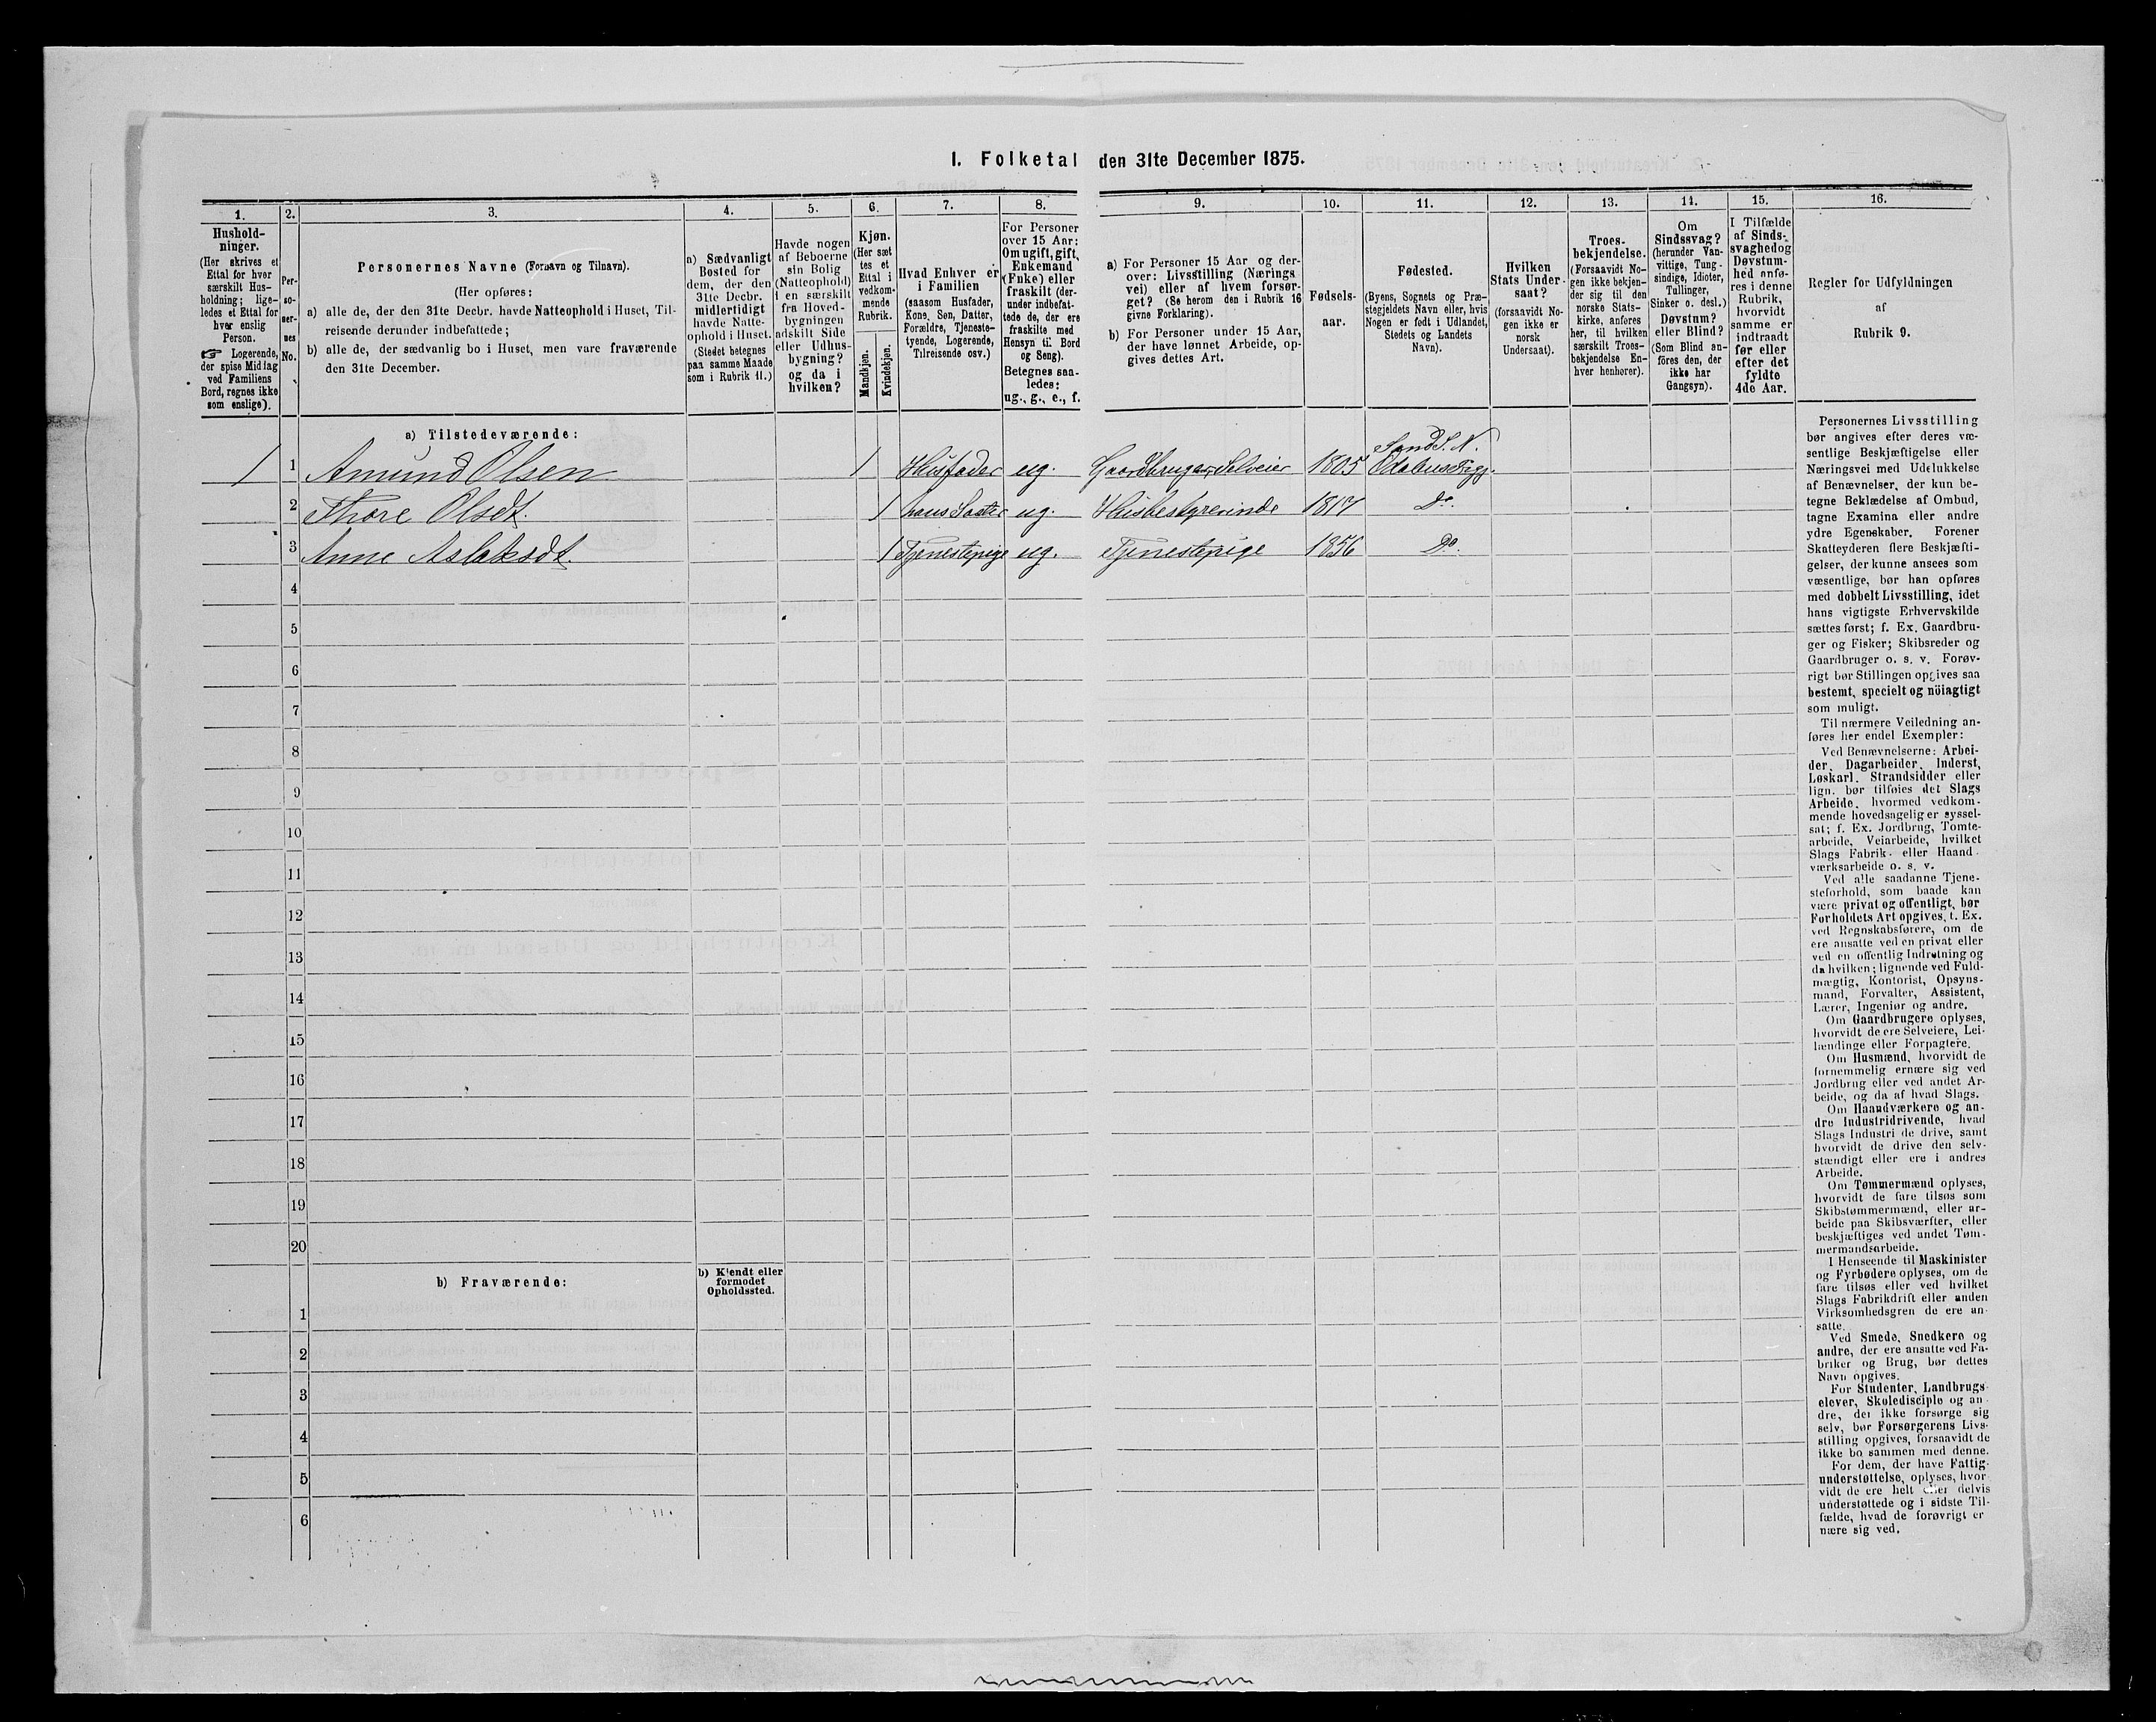 I. Folketal den 31te December 1875.
1. 2. 3. 4. 5. 6. 7. 8. 9. 10. 11. 12. 13. 14. 15. 16.
Hushold-
ninger.
(Her skrives et
Ettal for hver
særskilt Hus-
holdning; lige-
ledes et Ettal for
hver enslig
Person.
☞ Logerende,
der spise Middag
ved Familiens
Bord, regnes ikke
som enslige).
Per-
so-
ner-
nes
No.
Personernes Navne (Fornavn og Tilnavn).
(Her opføres:
a) alle de, der den 31te Decbr. havde Natteophold i Huset, Til-
reisende derunder indbefattede;
b) alle de, der sædvanlig bo i Huset, men vare fraværende
den 31te December.
a) Sædvanligt
Bosted for
dem, der den
31te Decbr.
midlertidigt
havde Natte-
ophold i Huset.
(Stedet betegnes
paa samme Maade
som i Rubrik 11.)
Havde nogen
af Beboerne
sin Bolig
(Natteophold)
i en særskilt
fra Hoved-
bygningen
adskilt Side
eller Udhus-
bygning?
og da i
hvilken?
Kjøn.
(Her sæt
tes et
Ettal i
vedkom-
mende
Rubrik.
Mandkjøn.
Kvindekjøn.
Hvad Enhver er
i Familien
(saasom Husfader,
Kone, Søn, Datter,
Forældre, Tjeneste-
tyende, Logerende,
Tilreisende osv.)
For Personer
over 15 Aar:
Om ugift, gift,
Enkemand
(Enke) eller
fraskilt (der-
under indbefat-
tede de, der ere
fraskilte med
Hensyn til Bord
og Seng).
Betegnes saa-
ledes:
ug., g., e., f.
a) For Personer 15 Aar og der-
over: Livsstilling (Nærings
vei) eller af hvem forsør-
get? (Se herom den i Rubrik 16
givne Forklaring).
b) For Personer under 15 Aar,
der have lønnet Arbeide, op-
gives dettes Art.
Fødsels-
aar.
Fødested.
(Byens, Sognets og Præ-
stegjeldets Navn eller, hvis
Nogen er født i Udlandet,
Stedets og Landets
Navn).
Hvilken
Stats Under-
saat?
(forsaavidt No-
gen ikke er
norsk
Undersaat).
Troes-
bekjendelse.
(Forsaavidt No-
gen ikke bekjen-
der sig til den
norske Stats-
kirke, anføres
her, til hvilken
særskilt Troes-
bekjendelse En-
hver henhører).
Om
Sindssvag?
(herunder Van-
vittige, Tung-
sindige, Idioter,
Tullinger,
Sinker o. desl.)
Døvstum?
eller Blind?
(Som Blind an-
föres den, der
ikke har
Gangsyn).
I Tilfælde
af Sinds-
svaghed og
Døvstum-
hed anfø-
res i denne
Rubrik,
hvorvidt
samme er
indtraadt
før eller
efter det
fyldte
4de Aar.
Regler for Udfyldningen
af
Rubrik 9.
a) Tilstedeværende:
1 1 Amund Olsen 1 Husfader ug. Gaardbruger, Selveier 1805 Sand S. N. Odalens Prgj.
2 Thore Olsdt. 1 hans Søster ug. Husbestyrerinde 1817 Do.
3 Anne Aslaksdt. 1 Tjenestepige ug. Tjenestepige 1856 Do.
4
5
6
7
8
9
10
11
12
13
14
15
16
17
18
19
20
b) Fraværende:
b) Kjendt eller
formodet
Opholdssted.
1
2
3
4
5
6
Personernes Livsstilling
bør angives efter deres væ-
sentlige Beskjæftigelse eller
Næringsvei med Udelukkelse
af Benævnelser, der kun be-
tegne Beklædelse af Ombud,
tagne Examina eller andre
ydre Egenskaber. Forener
Skatteyderen flere Beskjæfti-
gelser, der kunne ansees som
væsentlige, bør han opføres
med dobbelt Livsstilling, idet
hans vigtigste Erhvervskilde
sættes først; f. Ex. Gaardbru-
ger og Fisker; Skibsreder og
Gaardbruger o. s. v. Forøv-
rigt bør Stillingen opgives saa
bestemt, specielt og nöiagtigt
som muligt.
Til nærmere Veiledning an-
føres her endel Exempler:
Ved Benævnelserne: Arbei-
der, Dagarbeider, Inderst,
Løskarl, Strandsidder eller
lign. bør tilføies det Slags
Arbeide, hvormed vedkom-
mende hovedsagelig er syssel-
sat; f. Ex. Jordbrug, Tomte-
arbeide, Veiarbeide, hvilket
Slags Fabrik- eller Haand-
værksarbeide o. s. v.
Ved alle saadanne Tjene-
steforhold, som baade kan
være privat og offentligt, bør
Forholdets Art opgives, t. Ex.
ved Regnskabsførere, om de
ere ansatte ved en privat eller
ved en offentlig Indretning og
da hvilken; lignende ved Fuld-
mægtig, Kontorist, Opsyns-
mand, Forvalter, Assistent,
Lærer, Ingeniør og andre.
Om Gaardbrugere oplyses,
hvorvidt de ere Selveiere, Lei-
lændinge eller Forpagtere.
Om Husmænd, hvorvidt de
fornemmelig ernære sig ved
Jordbrug eller ved andet Ar-
beide, og da af hvad Slags.
Om Haandværkere og an-
dre Industridrivende, hvad
Slags Industri de drive, samt
hvorvidt de drive den selv-
stændigt eller ere i andres
Arbeide.
Om Tømmermænd oplyses,
hvorvidt de fare tilsøs som
Skibstømmermænd, eller ar-
beide paa Skibsværfter, eller
beskjæftiges ved andet Tøm-
mermandsarbeide.
I Henseende til Maskinister
og Fyrbødere oplyses, om de
fare tilsøs eller ved hvilket
Slags Fabrikdrift eller anden
Virksomhedsgren de ere an-
satte.
Ved Smede, Snedkere og
andre, der ere ansatte ved Fa-
briker og Brug, bør dettes
Navn opgives.
For Studenter, Landbrugs-
elever, Skoledisciple og an-
dre, der ikke forsørge sig
selv, bør Forsørgerens Livs-
stilling opgives, forsaavidt de
ikke bo sammen med denne.
For dem, der have Fattig-
understøttelse, oplyses, hvor-
vidt de ere helt eller delvis
understøttede og i sidste Til-
fælde, hvad de forøvrigt er
nære sig ved.